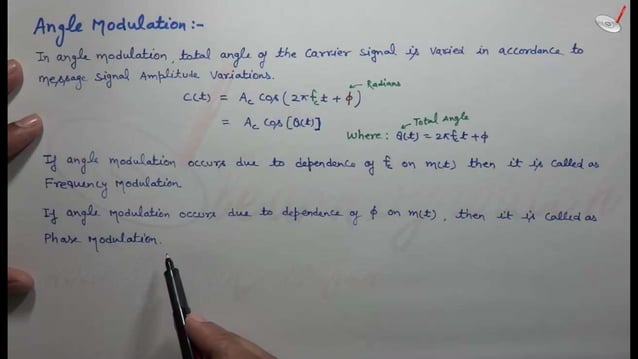 Angle Modulation:-
In angle modulation, total angle of the carrier signal is varied in accordance to
message signal Amplitude variations.
Radians
C(t) = Ac Cos (2πfct + φ)
= Ac Cos [θ(t)]
Total Angle
Where: θ(t) = 2πfct + φ
If angle modulation occurs due to dependence of fc on m(t) then it is called as
Frequency Modulation
If angle modulation occurs due to dependence of φ on m(t), then it is called as
Phase Modulation.